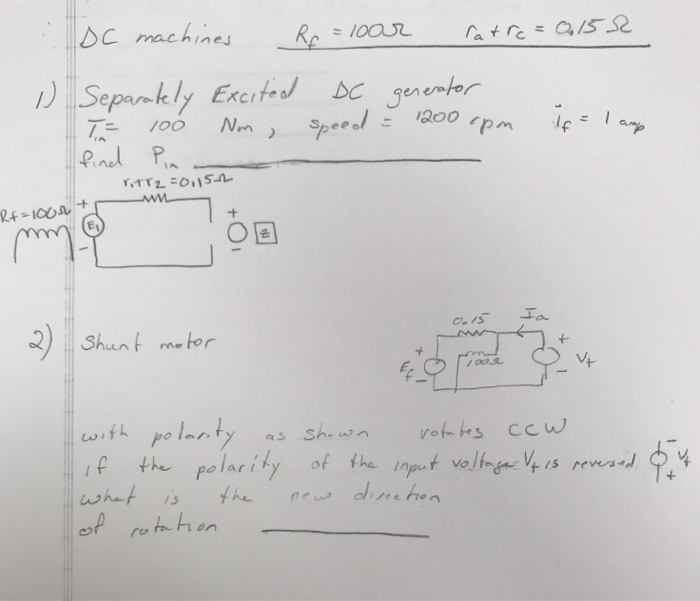 DC machines Rf = 100Ω ra + rc = 0.15 Ω
1) Separately Excited DC generator
Tin = 100 Nm, speed = 1200 rpm if = 1 amp
find Pin
r1+r2=0.15Ω
Rf=100Ω
+
E1
-
+
-
z
2) Shunt motor
0.15 Ia
+
Ef
-
100Ω
+
Vt
-
with polarity as shown rotates CCW
if the polarity of the input voltage Vt is reversed
-
Vt
+
what is the new direction
of rotation